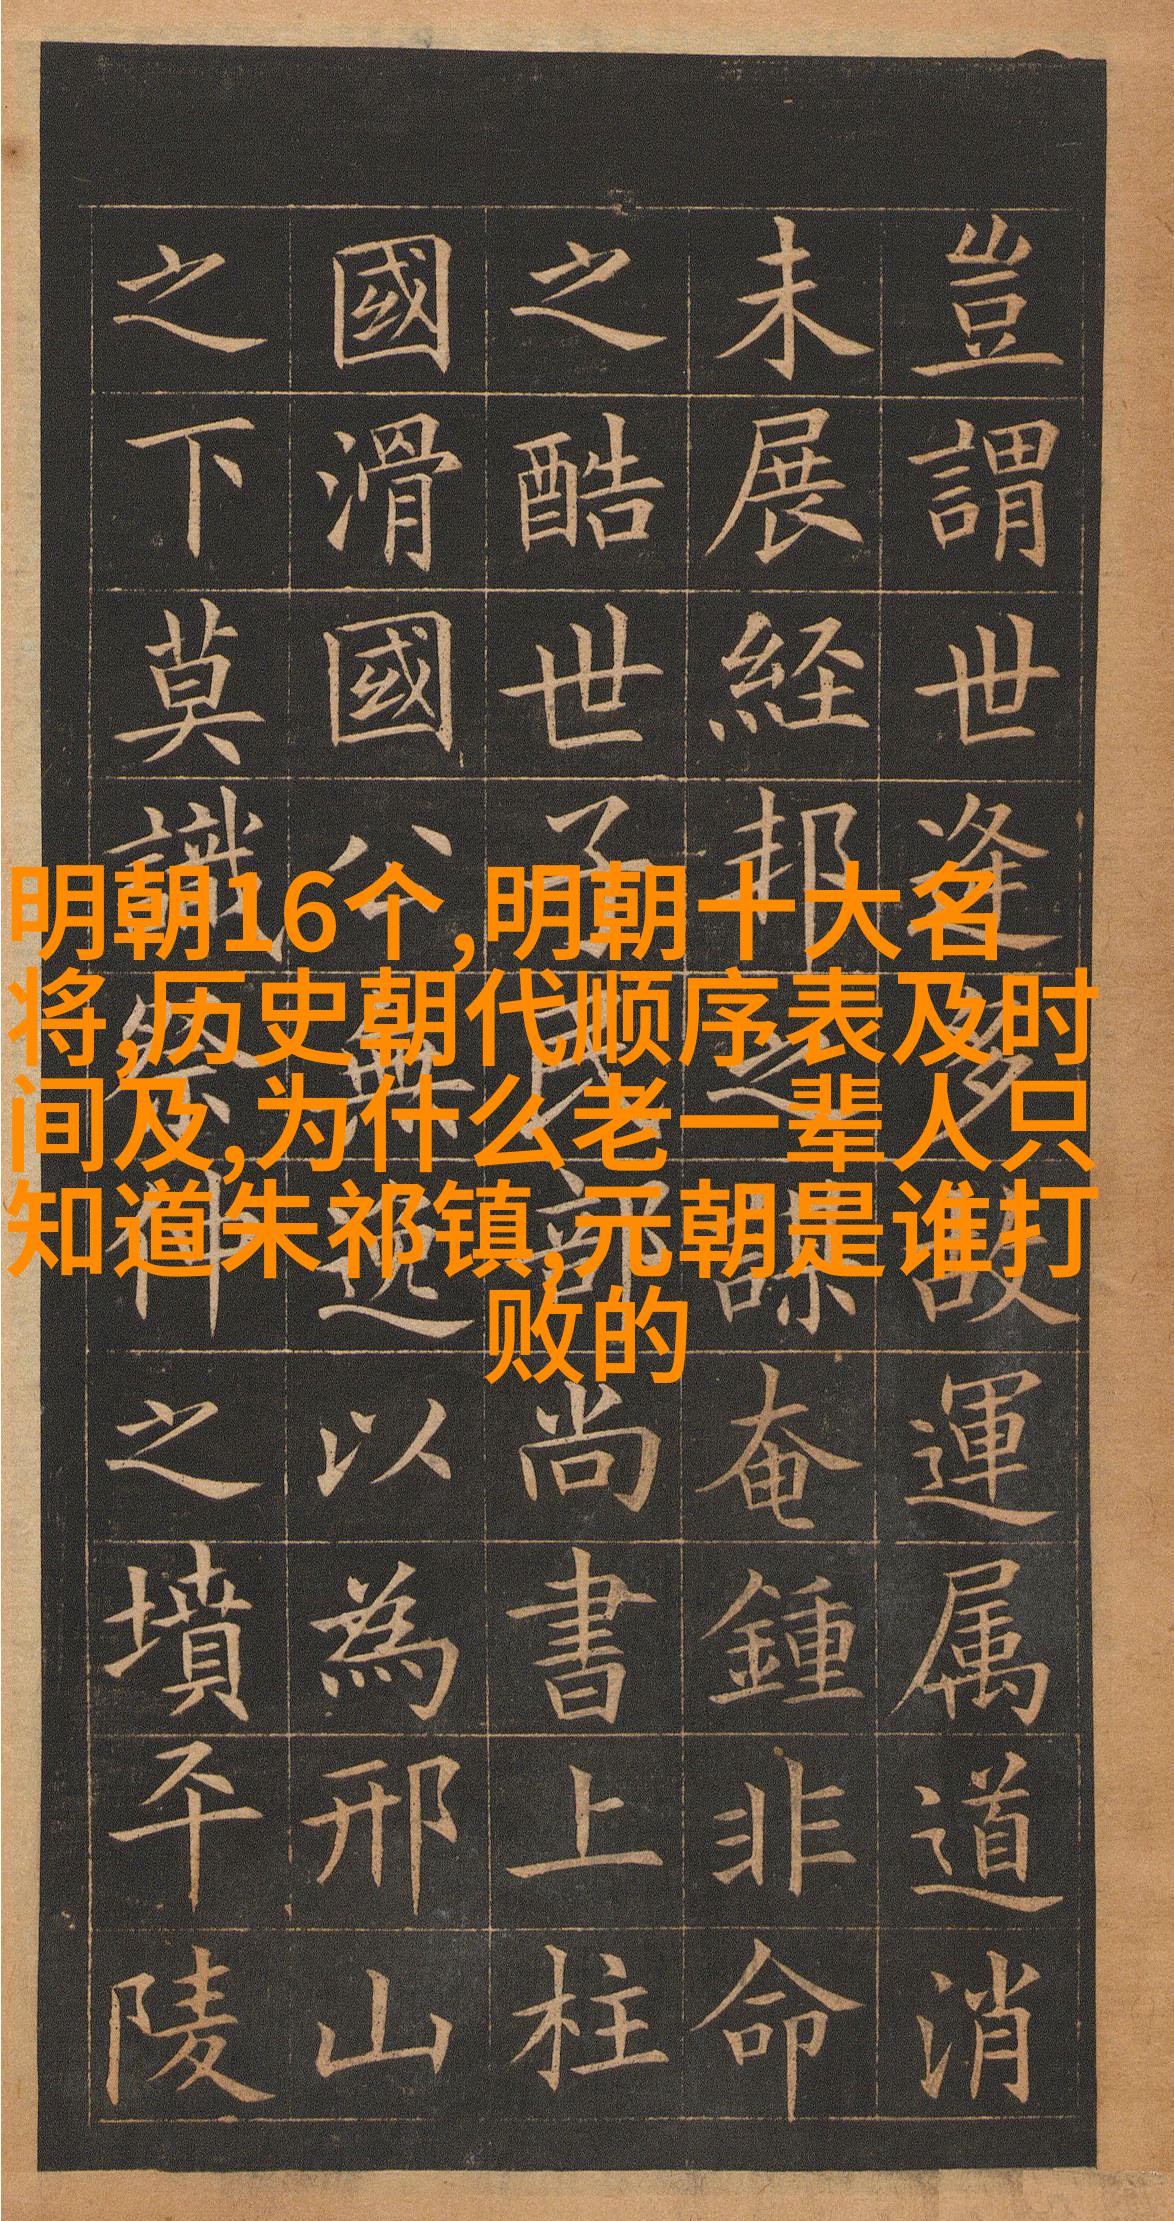 豈謂世逢多故運属道消
未展経邦之謀奄鍾非命
之酷世子民部尚書上柱
國滑國公無逸以為邢山
之下莫識祭仲之墳平陵
明朝16个,明朝十大名
将,历史朝代顺序表及时
间及,为什么老一辈人只
知道朱祁镇,元朝是谁打
败的